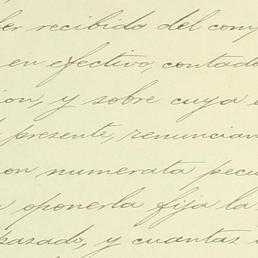 ber recibido del com
en efectivo, contado
ion, y sobre cuya e
presente, renuncian
on numerata pecu
oponerla fija la
pasado, y cuantas